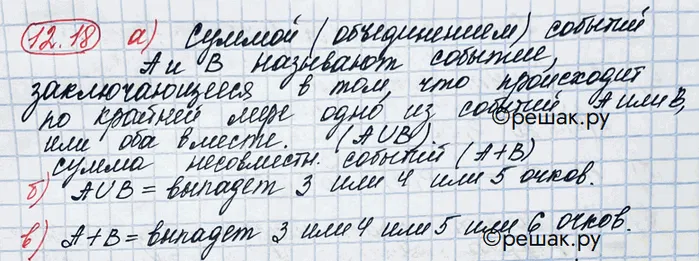 12.18 а) Суммой (объединением) событий
А и В называют событие,
заключающееся в том, что происходит
по крайней мере одно из событий А или В,
©решак.ру
или оба вместе. (A∪B).
сумма несовместн. событий (А+В)
б) A∪B = выпадет 3 или 4 или 5 очков.
в) А+В = выпадет 3 или 4 или 5 или 6 очков.
©решак.ру